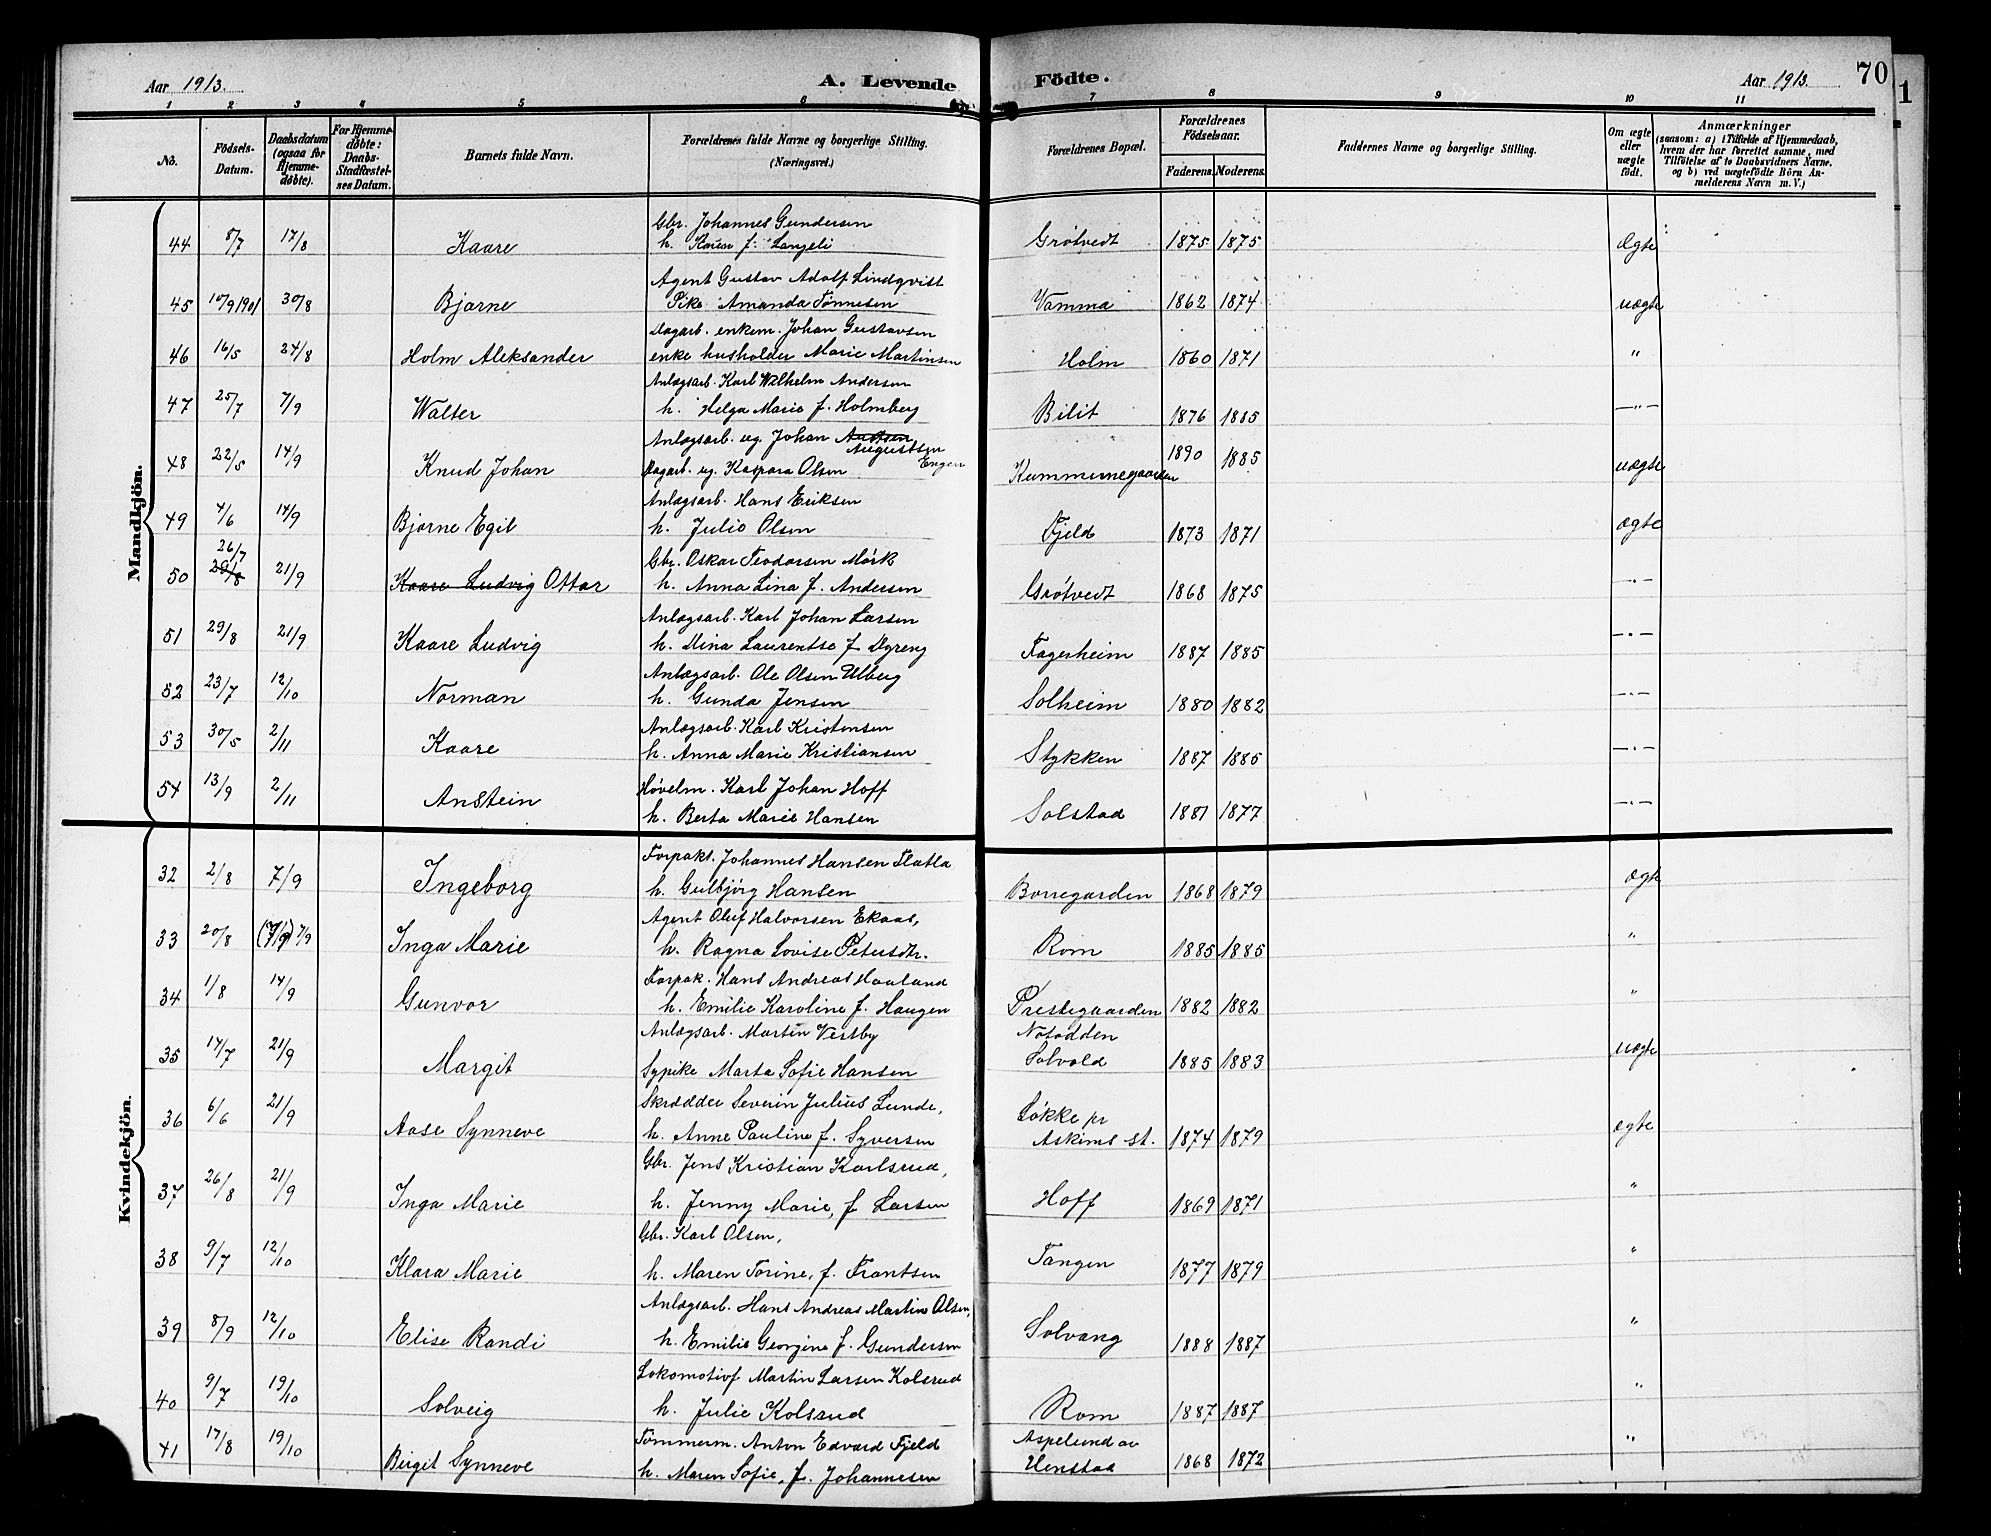 Aar 1913.
A. Levende
Födte.
Aar 1913.
70
1
1 2 3 4 5 6 7 8 9 10 11
No.
Födsels-Datum.
Daabsdatum (ogsaa for Hjemme-döbte).
For Hjemme-döbte: Daabs-Stadfæstel-ses Datum.
Barnets fulde Navn.
Forældrenes fulde Navne og borgerlige Stilling. (Næringsvei.)
Forældrenes Bopæl.
Forældrenes Födselsaar.
Faderens. Moderens.
Faddernes Navne og borgerlige Stilling.
Om ægte eller uægte födt.
Anmærkninger
(saasom: a) i Tilfælde af Hjemmedaab, hvem der har forrettet samme, med Tilföielse af to Daabsvidners Navne, og b) ved uægtefödte Börn An-melderens Navn m. V.)
Mandkjön.
Gbr. Johannes Gundersen
44 8/7 17/8 Kaare h. Karen f. Langeli Grøtvedt 1875 1875 Ægte
Agent Gustav Adolf Lindqvist
45 10/9 1901 30/8 Bjarne Pike Amanda Tønnesen Vamma 1862 1874 uægte
Dagarb. enkem. Johan Gustavsen
46 16/5 24/8 Holm Aleksander enke husholder Marie Martinsen Holm 1860 1871 "
Anlægsarb. Karl Wilhelm Andersen
47 25/7 7/9 Walter h. Helga Marie f. Holmberg Bilit 1876 1885 —"—
Anlægsarb. ug. Johan Augustsen Engen
48 22/5 14/9 Knud Johan Dagarb. ug. Kaspara Olsen Kummunegaarden 1890 1885 uægte
Anlægsarb. Hans Eriksen
49 4/6 14/9 Bjarne Egil h. Julie Olsen Fjeld 1873 1871 ægte
26/7 Gbr. Oskar Teodorsen Mørk
50 29/8 21/9 Kaare Ludvig Ottar h. Anna Lina f. Andersen Grøtvedt 1868 1875 —"—
Anlægsarb. Karl Johan Larsen
51 29/8 21/9 Kaare Ludvig h. Mina Laurentse f. Dyreng Fagerheim 1887 1885 —"—
Anlægsarb. Ole Olsen Ulberg
52 23/7 12/10 Norman h. Gunda Jensen Solheim 1880 1882 —"—
Anlægsarb. Karl Kristensen
53 30/5 2/11 Kaare h. Anna Marie Kristiansen Stykken 1887 1885 —"—
Høvelm. Karl Johan Hoff
54 13/9 2/11 Anstein h. Berta Marie Hansen Solstad 1881 1877 —"—
Kvindekjön.
Forpakt. Johannes Hansen Flatla
32 2/8 7/9 Ingeborg h. Gulbjørg Hansen Borregarden 1868 1879 ægte
Agent Oluf Halvorsen Ekaas,
33 20/8 (7/9) 7/9 Inga Marie h. Ragna Lovise Petersdtr. Rom 1885 1885 "
Forpak. Hans Andreas Haaland
34 1/8 14/9 Gunvor h. Emilie Karoline f. Haugen Prestegaarden 1882 1882 "
Anlægsarb. Martin Vestby Notodden
35 17/7 21/9 Margit Sypike Marta Sofie Hansen Solvold 1885 1883 uægte
Skrædder Severin Julius Lunde, Løkke pr
36 6/6 21/9 Aase Synneve h. Anne Pauline f. Syversen Askims st. 1874 1879 ægte
Gbr. Jens Kristian Karlsrud,
37 26/8 21/9 Inga Marie h. Jenny Marie, f. Larsen Hoff 1869 1871 "
Gbr. Karl Olsen,
38 9/7 12/10 Klara Marie h. Maren Torine, f. Frantsen Tangen 1877 1879 "
Anlægsarb. Hans Andreas Martin Olsen,
39 8/9 12/10 Elise Randi h. Emilie Georgine f. Gundersen Solvang 1888 1887 "
Lokomotivf Martin Larsen Kolsrud
40 9/7 19/10 Solveig h. Julie Kolsrud Rom 1887 1887 "
Tømmerm. Anton Edvard Fjeld Aspelund av
41 17/8 19/10 Birgit Synneve h. Maren Sofie, f. Johannesen Henstad 1868 1872 "